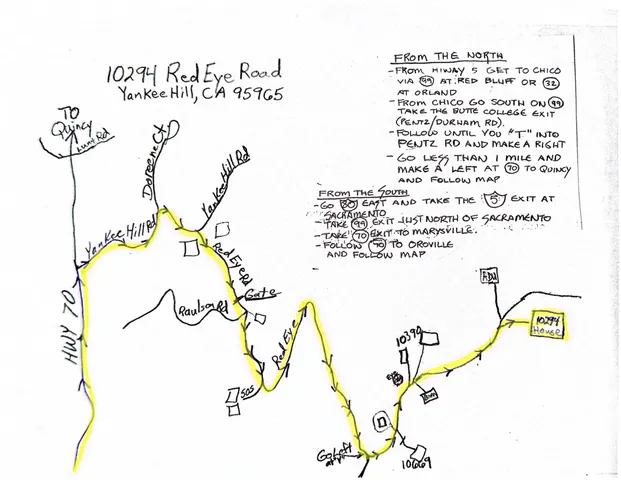 10294 Red Eye Road
Yankee Hill, CA 95965
FROM THE NORTH
- FROM HIWAY 5 GET TO CHICO
VIA 99 AT RED BLUFF OR 32
AT ORLAND
- FROM CHICO GO SOUTH ON 99
TAKE THE BUTTE COLLEGE EXIT
(PENTZ/DURHAM RD).
- FOLLOW UNTIL YOU "T" INTO
PENTZ RD AND MAKE A RIGHT
- GO LESS THAN 1 MILE AND
MAKE A LEFT AT 70 TO QUINCY
AND FOLLOW MAP
FROM THE SOUTH
- GO 80 EAST AND TAKE THE 5 EXIT AT
SACRAMENTO
- TAKE 99 EXIT JUST NORTH OF SACRAMENTO
- TAKE 70 EXIT TO MARYSVILLE.
- FOLLOW 70 TO OROVILLE
AND FOLLOW MAP
TO
Quincy
Lunt Rd
Doreene Ct
Yankee Hill Rd
Yankee Hill Rd
Red Eye Rd
Gate
HWY 70
Paulson Rd
Red Eye
505
10390
10294
House
Go Left
10669